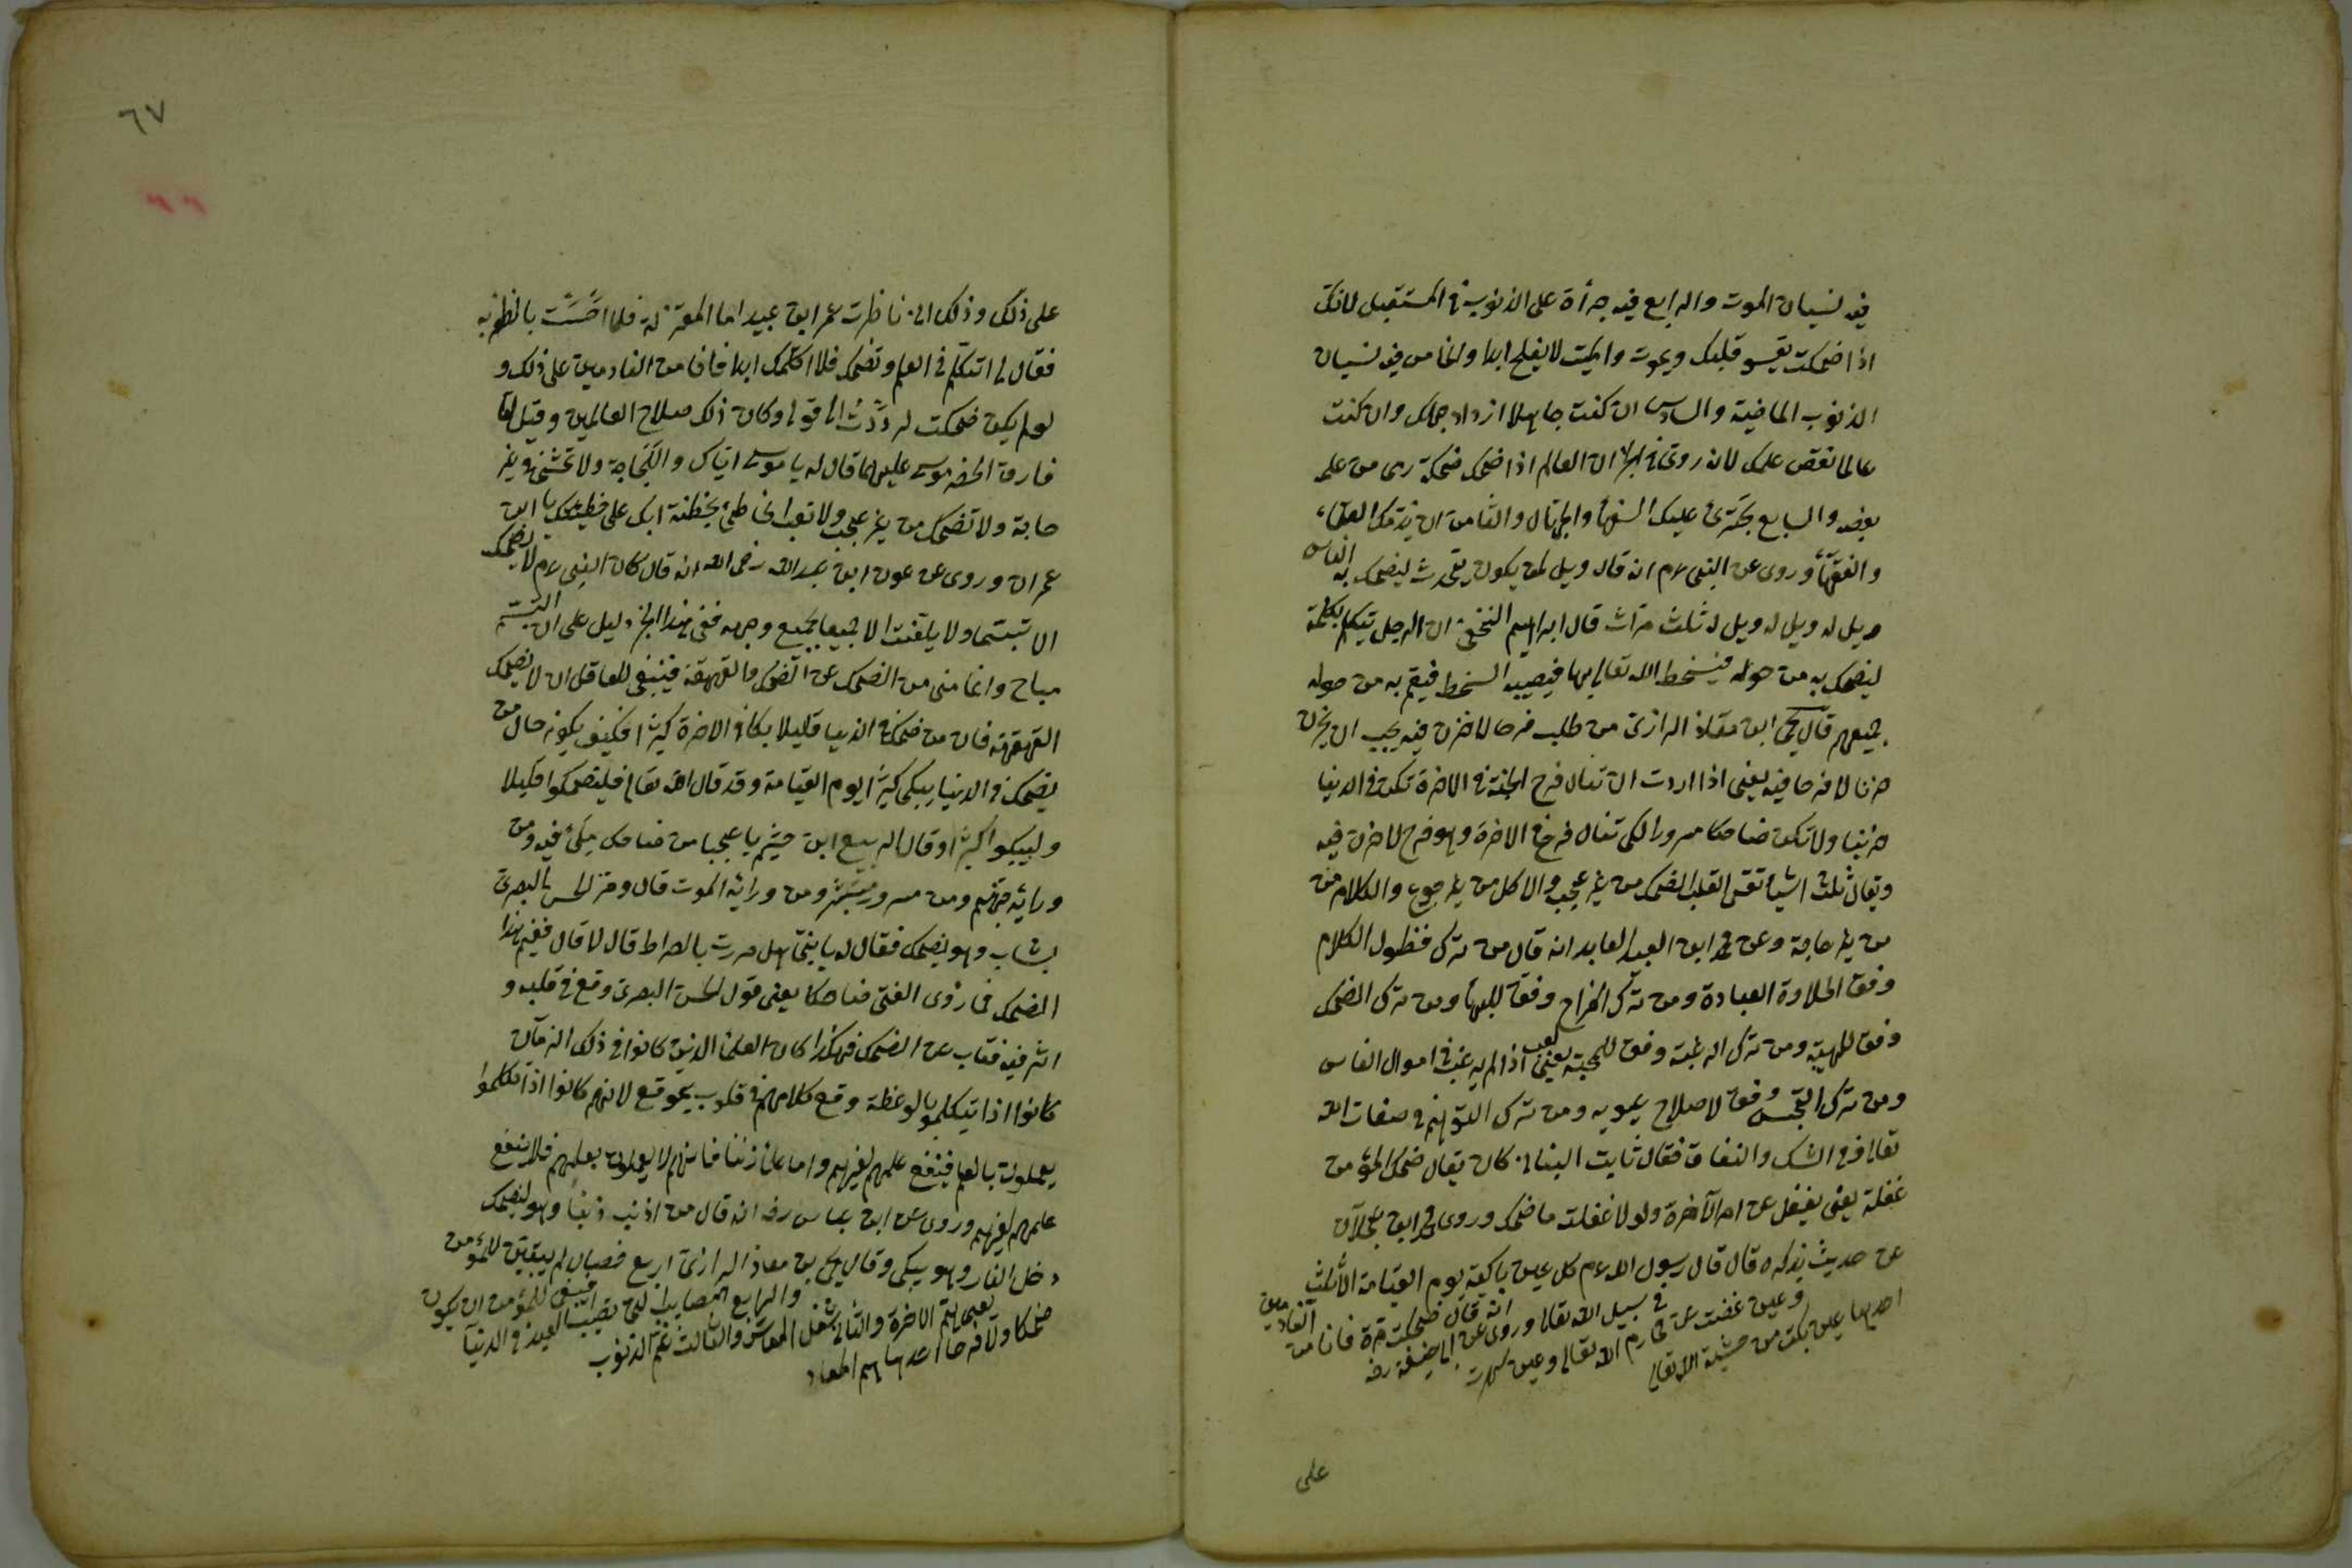 فيه نسيان الموت والرابع فيه جرأة على الذنوب في المستقبل لانك
اذا ضحكت يقسو قلبك ويموت والميت لا يفلح ابدا والخامس فيه نسيان
الذنوب الماضية والسادس ان كنت جاهلا ازداد جهلك وان كنت
عالما نقص علمك لانه روى في الخبر ان العالم اذا ضحك ضحكة رمى من علمه
بعضه والسابع يجترئ عليك السفهأ والجهال والثامن ان يذمك العقلاء
والفقهأ وروى عن النبى عم انه قال ويل لمن يكون يتحدث ليضحك به الناس
ويل له ويل له ويل له ثلث مرات قال ابراهيم النخعى ان الرجل يتكلم بكلمة
ليضحك به من حوله فيسخط الله تعالى بها فيصيبه السخط فيقم به من حوله
جميعهم قال يحيى ابن معاذ الرازى من طلب فرحا لا حزن فيه يجب ان يحزن
حزنا لا فرحا فيه يعنى اذا اردت ان تنال فرح الجنة في الاخرة تكون في الدنيا
حزينا ولا تكون ضاحكا مسرورا لكى تنال فرح في الاخرة وهو فرح لا حزن فيه
ويقال ثلث اشيأ تقسى القلب الضحك من غير عجب والاكل من غير جوع والكلام من
من غير حاجة وعن محمد ابن العبد العابد انه قال من ترك فضول الكلام
وفق الحلاوة العبادة ومن ترك المزاح وفق للبهأ ومن ترك الضحك
وفق للهيبة ومن ترك الرغبة وفق للمحبة يعنى اذا لم يرغب في اموال الناس
ومن ترك التجسس وفق لاصلاح عيوبه ومن ترك التوهم في صفات الله
تعالى في الشك والنفاق فقال ثابت البنانى كان يقال ضحك المؤمن
غفلة يعنى يغفل عن امر الآخرة ولولا غفلته ما ضحك وروى محمد ابن عجلان
عن حديث يذكره قال قال رسول الله عم كل عين باكية يوم القيامة الا ثلث
احديها عين بكت من خشية الله تعالى
وعين غضت عن محارم الله تعالى وعين سهرت
في سبيل الله تعالى وروى عن ابى حنيفة رضه
انه قال ضحكت مرة فانا من
النادمين
على
٦٧
على ذلك وذلك انى ناظرت عمر ابن عبيد اما المعتزلة فلما احسست بالظفر به
فقال لى اتتكلم في العلم وتضحك فلا اكلمك ابدا فانا من النادمين على ذلك و
لو لم يكن ضحكت لرددت الى قولى وكان ذلك صلاح العالمين وقيل لما
فارق الخضر موسى عليهما قال له يا موسى اياك واللجاجة ولا تمشى في غير
حاجة ولا تضحك من غير عجب ولا تعب الخاطئ بخطئة ابك على خطيئتك يا ابن
عمران وروى عن عون ابن عبد الله رضى الله انه قال كان النبى عم لا يضحك
الا تبسما ولا يلتفت الا جميعا بجميع وجهه ففى هذا الخبر دليل على ان التبسم
مباح وانما منى من الضحك عن الضحك والقهقهة فينبغى للعاقل ان لا يضحك
القهقهة فان من ضحك في الدنيا قليلا بكا في الاخرة كثيرا فكيف يكون حال من
يضحك في الدنيا يبكى كثيرا يوم القيامة وقد قال الله تعالى فليضحكوا قليلا
وليبكوا كثيرا وقال الربيع ابن خيثم يا عجبا من ضاحك يبكى فيه ومن
ورائه جهنم ومن مسرور ومن ورائه الموت قال ومر الحسن بالبصرى
بشاب وهو يضحك فقال له يا بنى هل مررت بالصراط قال لا قال ففيم هذا
الضحك فما رؤى الفتى ضاحكا يعنى قول الحسن البصرى وقع في قلبه و
اثر فيه فتاب عن الضحك فهكذا كان العلمأ الذين كانوا في ذلك الزمان
كانوا اذا يتكلموا بالوعظة وقع كلامهم في قلوب بموقع لانهم كانوا اذا تكلموا
يعملون بالعلم فينفع علمهم لغيرهم واما علمأ زمننا فانهم لا يعملون بعلمهم فلا ينفع
علمهم لغيرهم وروى عن ابن عباس رضه انه قال من اذنب ذنبا وهو يضحك
دخل النار وهو يبكى وقال يحيى بن معاذ الرازى اربع خصال لم يبقين للمؤمن
ضحكا ولا فرحا احدها هم المعاد
يعنى هم الاخرة والثانى شغل المعاش والثالث غم الذنوب
والرابع المصايب التى تصيب العبد في الدنيا
فينبغى للمؤمن ان يكون